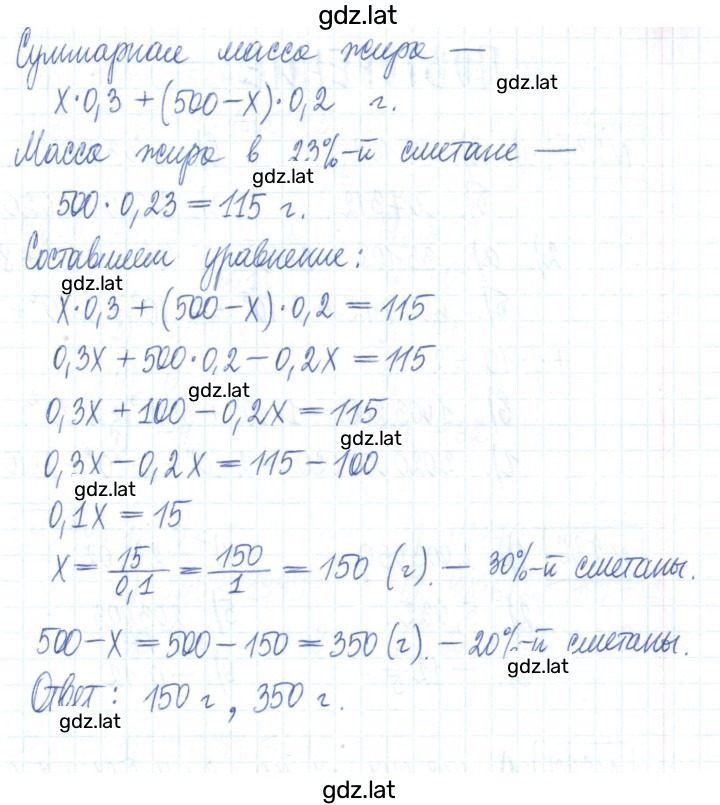 gdz.lat
Суммарная масса жира —
gdz.lat
x·0,3 + (500-x)·0,2 г.
Масса жира в 23%-й сметане —
gdz.lat
500·0,23 = 115 г.
Составляем уравнение:
gdz.lat
x·0,3 + (500-x)·0,2 = 115
0,3x + 500·0,2 - 0,2x = 115
gdz.lat
0,3x + 100 - 0,2x = 115
gdz.lat
0,3x - 0,2x = 115 - 100
gdz.lat
0,1x = 15
x = 15/0,1 = 150/1 = 150 (г). — 30%-й сметаны.
500 - x = 500 - 150 = 350 (г). — 20%-й сметаны.
gdz.lat
Ответ: 150 г, 350 г.
gdz.lat
gdz.lat